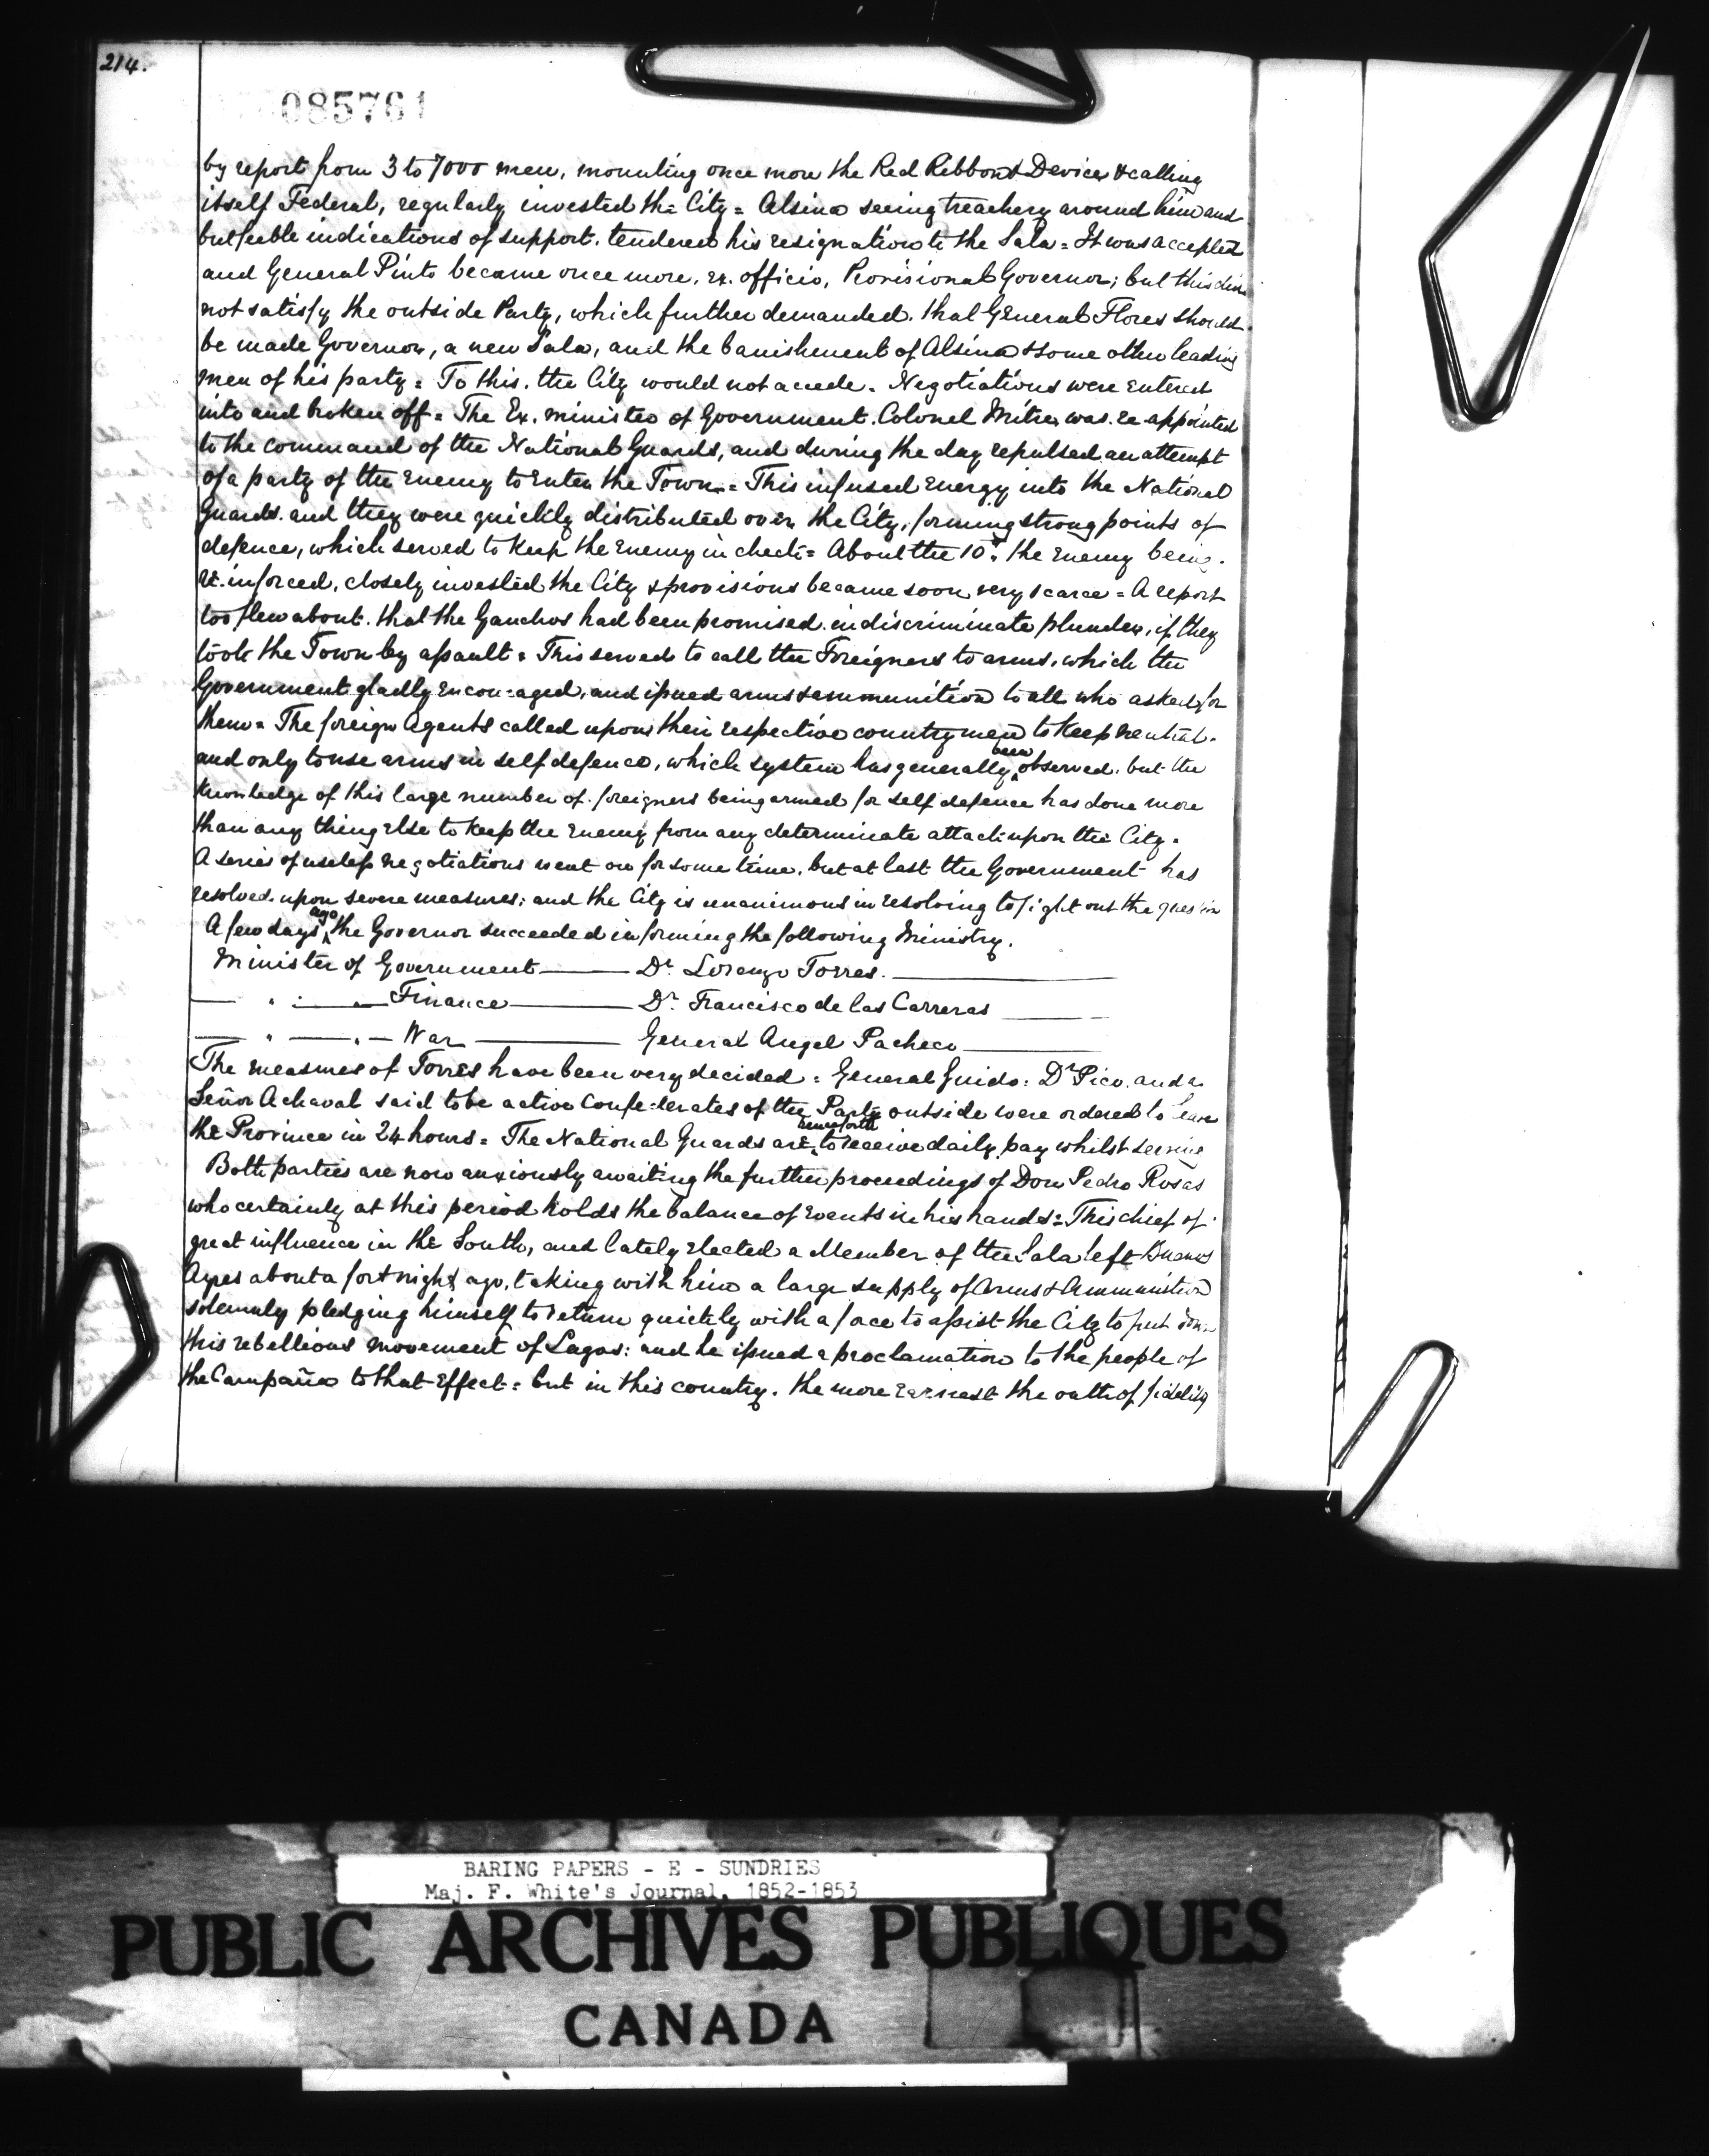 214.
085761
by report from 3 to 7000 men, mounting once more the Red Ribbon & Devices & calling
itself Federal, regularly invested the City = Alsina seeing treachery around him and
but feeble indications of support. tendered his resignation to the Sala = It was accepted
and General Pinto became once more, ex. officio, Provisional Governor; but this did
not satisfy the outside Party, which further demanded. that General Flores should
be made Governor, a new Sala, and the banishment of Alsina & some other leading
men of his party = To this. the City would not accede. Negotiations were entered
into and broken off = The Ex. minister of Government. Colonel Mitre, was re-appointed
to the command of the National Guards, and during the day repulsed an attempt
of a party of the Enemy to Enter the Town = This infused Energy into the National
Guards. and they were quickly distributed over the City, forming strong points of
defence, which served to keep the Enemy in check = About the 10th the Enemy being
re.inforced, closely invested the City & provisions became soon very scarce = A report
too flew about. that the Gauchos had been promised indiscriminate plunder, if they
took the Town by assault = This served to call the Foreigners to arms, which the
Government gladly Encou=aged, and issued arms & ammunition to all who asked for
them = The foreign Agents called upon their respective countrymen to keep neutral.
and only to use arms in self defence, which system has generally been observed. but the
knowledge of this large number of foreigners being armed for self defence has done more
than any thing Else to keep the Enemy from any determinate attack upon the City.
A series of useless negotiations went on for some time, but at last the Government has
resolved upon severe measures; and the City is unanimous in resolving to fight out the question
A few days ago the Governor succeeded in forming the following Ministry.
Minister of Government — Dr. Lorenzo Torres. —
— " — " — Finance — Dr. Francisco de las Carreras —
— " — " — War — General Angel Pacheco —
The measures of Torres have been very decided = General Guido = Dr Pico. and a
Señor Achaval said to be active Confederates of the Party outside were ordered to leave
the Province in 24 hours = The National Guards are henceforth to receive daily pay whilst serving
Both parties are now anxiously awaiting the further proceedings of Don Pedro Rosas
who certainly at this period holds the balance of Events in his hands = This chief of
great influence in the South, and lately Elected a Member of the Sala left Buenos
Ayres about a fortnight ago, taking with him a large supply of Arms & Ammunition
solemnly pledging himself to return quickly with a force to assist the City to put down
this rebellious movement of Lagos: and he issued a proclamation to the people of
the Campaña to that Effect = but in this country. the more Earnest the oath of fidelity
BARING PAPERS - E - SUNDRIES
Maj. F. White's Journal, 1852-1853
PUBLIC ARCHIVES PUBLIQUES
CANADA